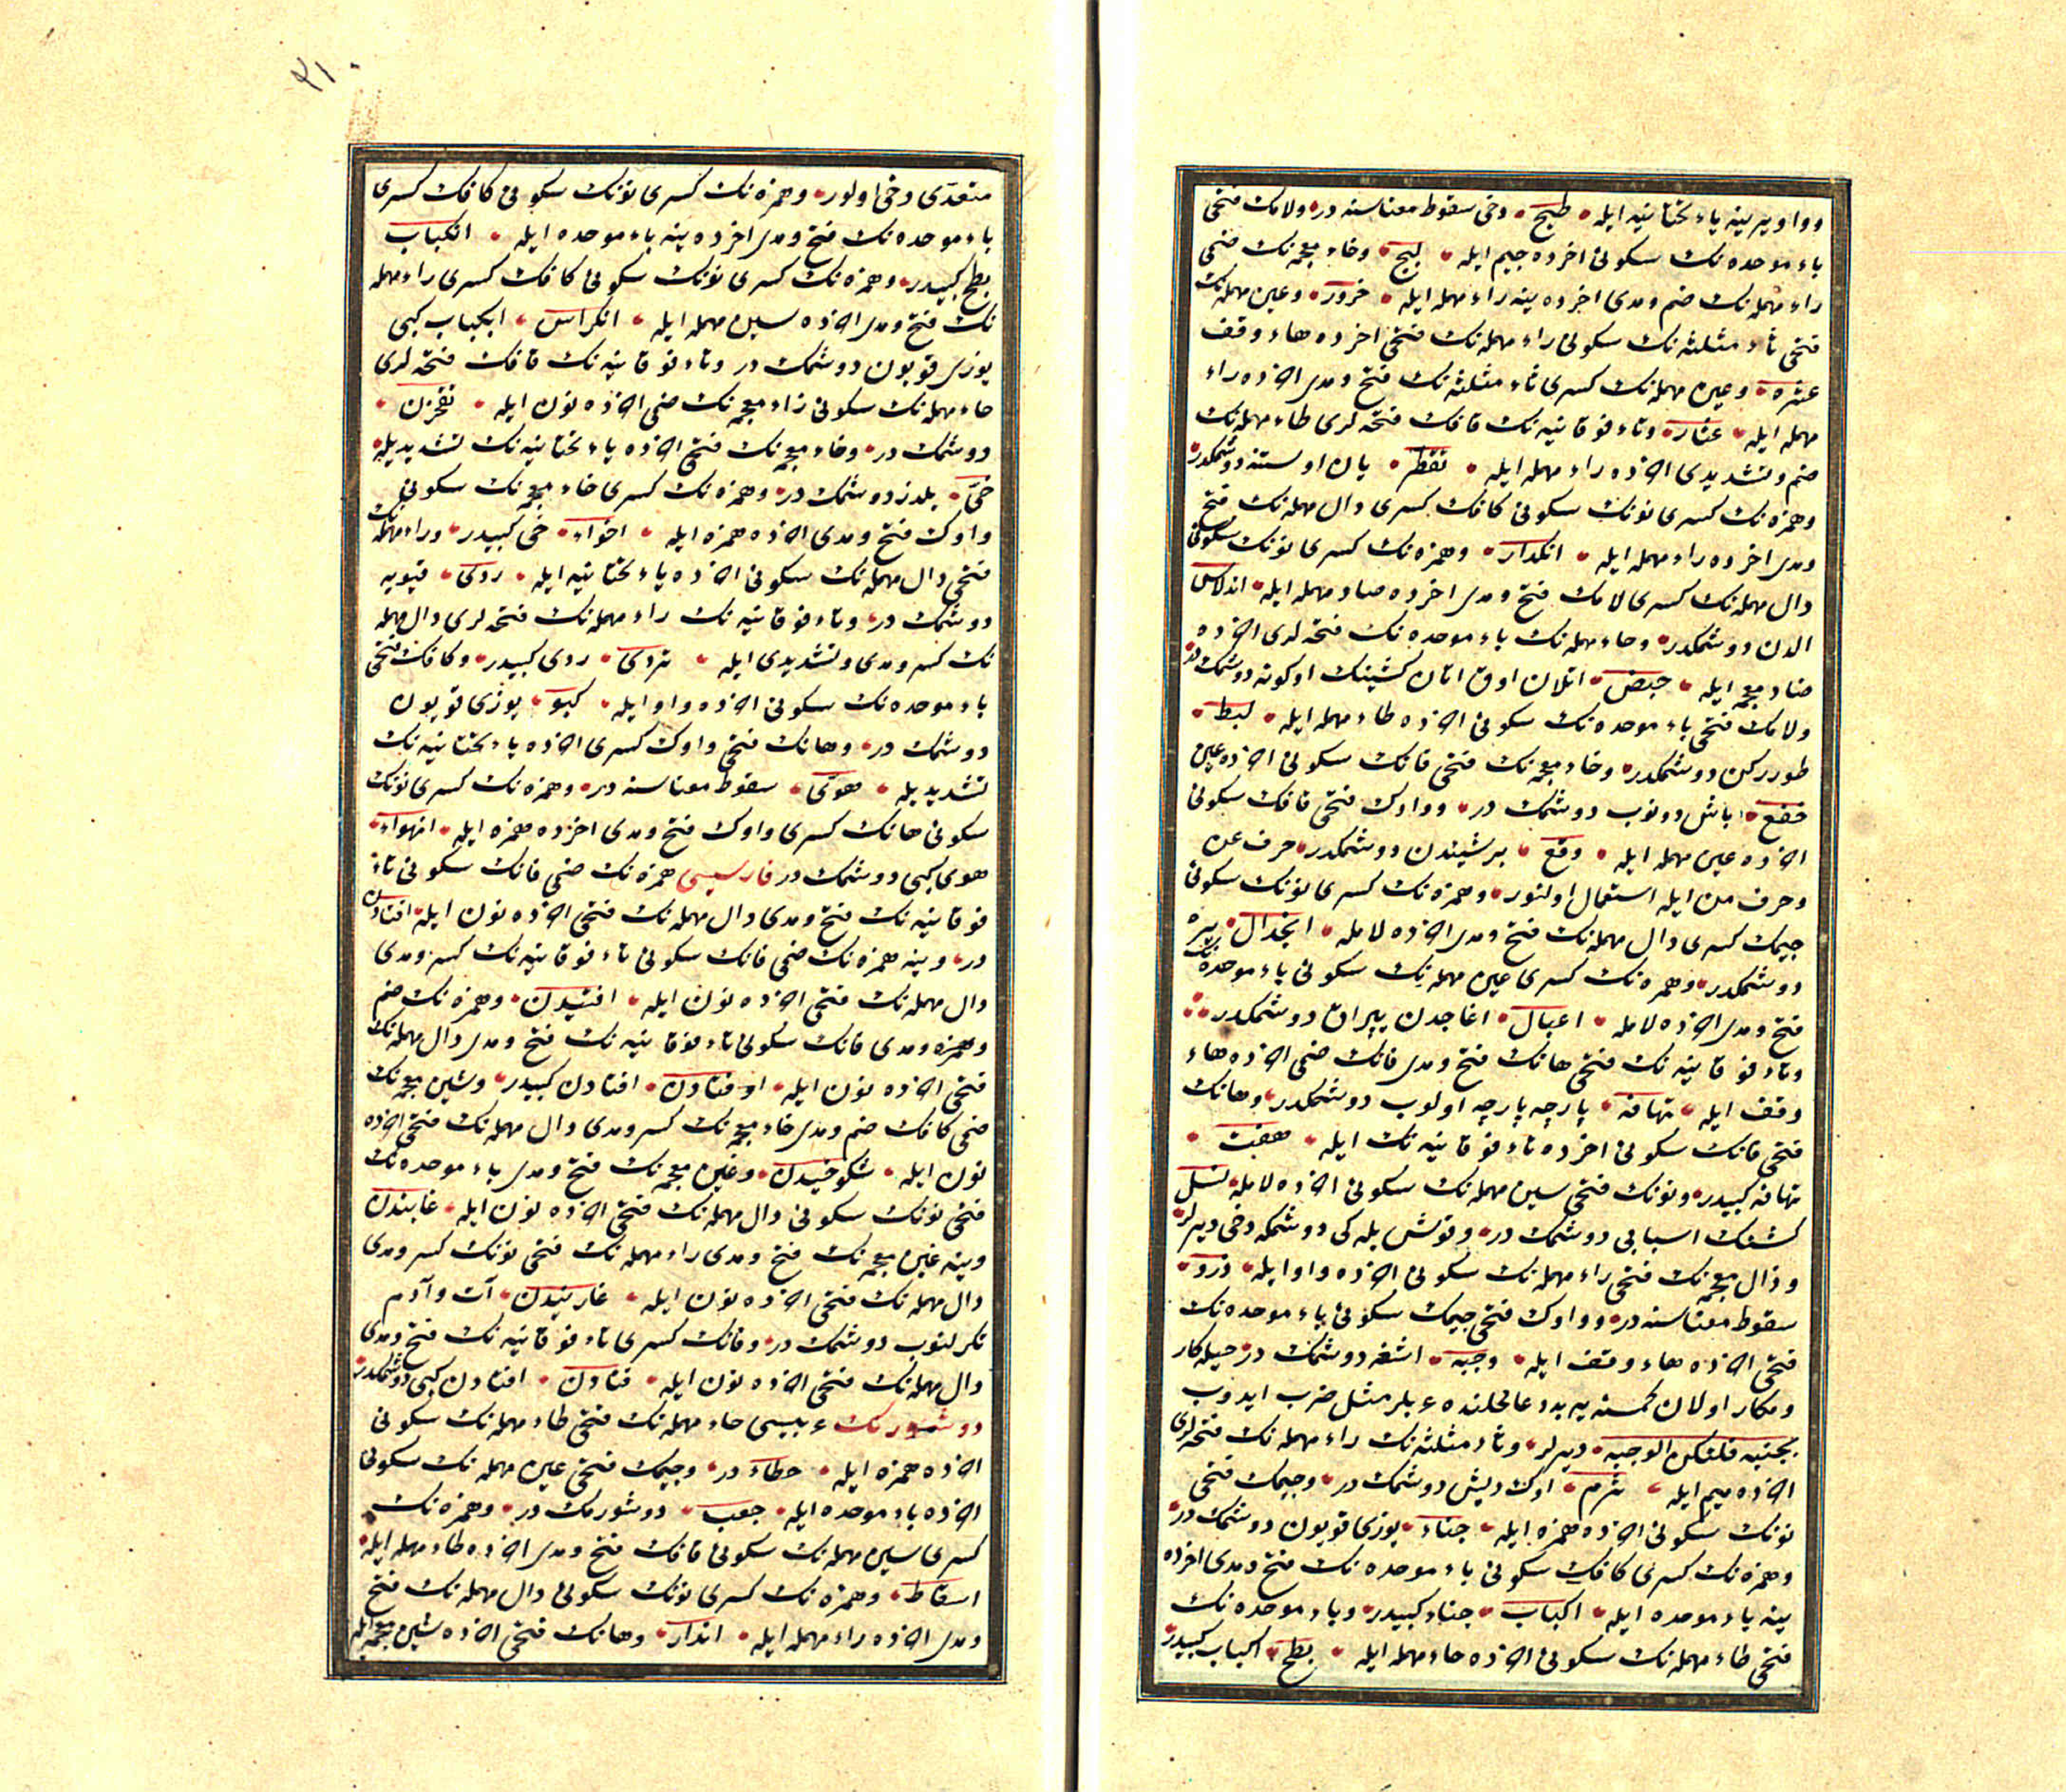 وواویرینه یاء تحتانیه ایله طبیج دخی سقوط معناسنه در ولامك فتحی
باء موحده نك سكونی اخرده جیم ایله لبج وخاء معجمه نك ضمی
راء مهمله نك ضم ومدی اخرده ینه راء مهمله ایله خرور وعین مهمله نك
فتحی ثاء مثلثه نك سكونی راء مهمله نك فتحی اخرده هاء وقف
عثره وعین مهمله نك كسری ثاء مثلثه نك فتح ومدی اخرده راء
مهمله ایله عثار وتاء فوقانیه نك قافك فتحه لری طاء مهمله نك
ضم وتشدیدی اخرده راء مهمله ایله تقطر یان اوستنه دوشمكدر
وهمزه نك كسری نونك سكونی كافك كسری دال مهمله نك فتح
ومدی اخرده راء مهمله ایله انكدار وهمزه نك كسری نونك سكونی
دال مهمله نك كسری لامك فتح ومدی اخرده صاد مهمله ایله اندلاص
الدن دوشمكدر وحاء مهمله نك باء موحده نك فتحه لری اخرده
ضاد معجمه ایله حبض اتلان اوق اتان كشینك اوكونه دوشمك در
ولامك فتحی باء موحده نك سكونی اخرده طاء مهمله ایله لبط
طوررکن دوشمكدر وخاء معجمه نك فتحی فانك سكونی اخرده عین
خفع باش دونوب دوشمك در وواوك فتحی قافك سكونی
اخرده عین مهمله ایله وقع برشیئدن دوشمكدر حرف عن
وحرف من ایله استعمال اولنور وهمزه نك كسری نونك سكونی
جیمك كسری دال مهمله نك فتح ومدی اخرده لامله انجدال یره
دوشمكدر وهمزه نك كسری عین مهمله نك سكونی باء موحده نك
فتح ومدی اخرده لامله اعبال اغاجدن یپراق دوشمكدر
وتاء فوقانیه نك فتحی هانك فتح ومدی فانك ضمی اخرده هاء
وقف ایله تهافه پارچه پارچه اولوب دوشمكدر وهانك
فتحی فانك سكونی اخرده تاء فوقانیه نك ایله هفت
تهافه كبیدر ونونك فتحی سین مهمله نك سكونی اخرده لامله نسل
كشنك اسبابی دوشمك در وقوش یله كی دوشمكه دخی دیرلر
وذال معجمه نك فتحی راء مهمله نك سكونی اخرده واو ایله ذرو
سقوط معناسنه در وواوك فتحی جیمك سكونی باء موحده نك
فتحی اخرده هاء وقف ایله وجبه اشغه دوشمك در حیله كار
ومكار اولان كمسنه یه بددعا محلنده عربلر مثل ضرب ایدوب
بجنبه فلتكن الوجبه دیرلر وثاء مثلثه نك راء مهمله نك فتحه لری
اخرده میم ایله ثرم اوك دیش دوشمك در وجیمك فتحی
نونك سكونی اخرده همزه ایله جناء یوزی قویون دوشمك در
وهمزه نك كسری كافك سكونی باء موحده نك فتح ومدی اخرده
ینه باء موحده ایله اكباب جناء كبیدر وباء موحده نك
فتحی طاء مهمله نك سكونی اخرده حاء مهمله ایله بطح اكباب كبیدر
۳۱۰
متعدی دخی اولور وهمزه نك كسری نونك سكونی كافك كسری
باء موحده نك فتح ومدی اخرده ینه باء موحده ایله انكباب
بطح كبیدر وهمزه نك كسری نونك سكونی كافك كسری راء مهمله
نك فتح ومدی اخرده سین مهمله ایله انكراس انكباب كبی
یوزی قویون دوشمك در وتاء فوقانیه نك قافك فتحه لری
حاء مهمله نك سكونی زاء معجمه نك ضمی اخرده نون ایله تقحزن
دوشمك در وخاء معجمه نك فتحی اخرده یاء تحتانیه نك تشدیدیله
خی یلدز دوشمك در وهمزه نك كسری خاء معجمه نك سكونی
واوك فتح ومدی اخرده همزه ایله اخواء خی كبیدر وراء مهمله نك
فتحی دال مهمله نك سكونی اخرده یاء تحتانیه ایله ردی قیویه
دوشمك در وتاء فوقانیه نك راء مهمله نك فتحه لری دال مهمله
نك كسر ومدی وتشدیدی ایله تردی ردی كبیدر وكافك فتحی
باء موحده نك سكونی اخرده واو ایله كبو یوزی قویون
دوشمك در وهانك فتحی واوك كسری اخرده یاء تحتانیه نك
تشدیدیله هوی سقوط معناسنه در وهمزه نك كسری نونك
سكونی هانك كسری واوك فتح ومدی اخرده همزه ایله انهواء
هوی كبی دوشمك در فارسیسی همزه نك ضمی فانك سكونی تاء
فوقانیه نك فتح ومدی دال مهمله نك فتحی اخرده نون ایله افتادن
در وینه همزه نك ضمی فانك سكونی تاء فوقانیه نك كسر ومدی
دال مهمله نك فتحی اخرده نون ایله افتیدن وهمزه نك ضم
وهمزه ومدی فانك سكونی تاء فوقانیه نك فتح ومدی دال مهمله نك
فتحی اخرده نون ایله اوفتادن افتادن كبیدر وشین معجمه نك
ضمی كافك ضم ومدی خاء معجمه نك كسر ومدی دال مهمله نك فتحی اخرده
نون ایله شكوخیدن وغین معجمه نك فتح ومدی باء موحده نك
فتحی نونك سكونی دال مهمله نك فتحی اخرده نون ایله غابندن
وینه غین معجمه نك فتح ومدی راء مهمله نك فتحی نونك كسر ومدی
دال مهمله نك فتحی اخرده نون ایله غارنیدن آت وآدم
تكرلنوب دوشمك در وفانك كسری تاء فوقانیه نك فتح ومدی
دال مهمله نك فتحی اخرده نون ایله فتادن افتادن كبی دوشمكدر
دوشورمك عربیسی حاء مهمله نك فتحی طاء مهمله نك سكونی
اخرده همزه ایله حطاء در وجیمك فتحی عین مهمله نك سكونی
اخرده باء موحده ایله جعب دوشورمك در وهمزه نك
كسری سین مهمله نك سكونی قافك فتح ومدی اخرده طاء مهمله ایله
اسقاط وهمزه نك كسری نونك سكونی دال مهمله نك فتح
ومدی اخرده راء مهمله ایله اندار وهانك فتحی اخرده شین معجمه ایله